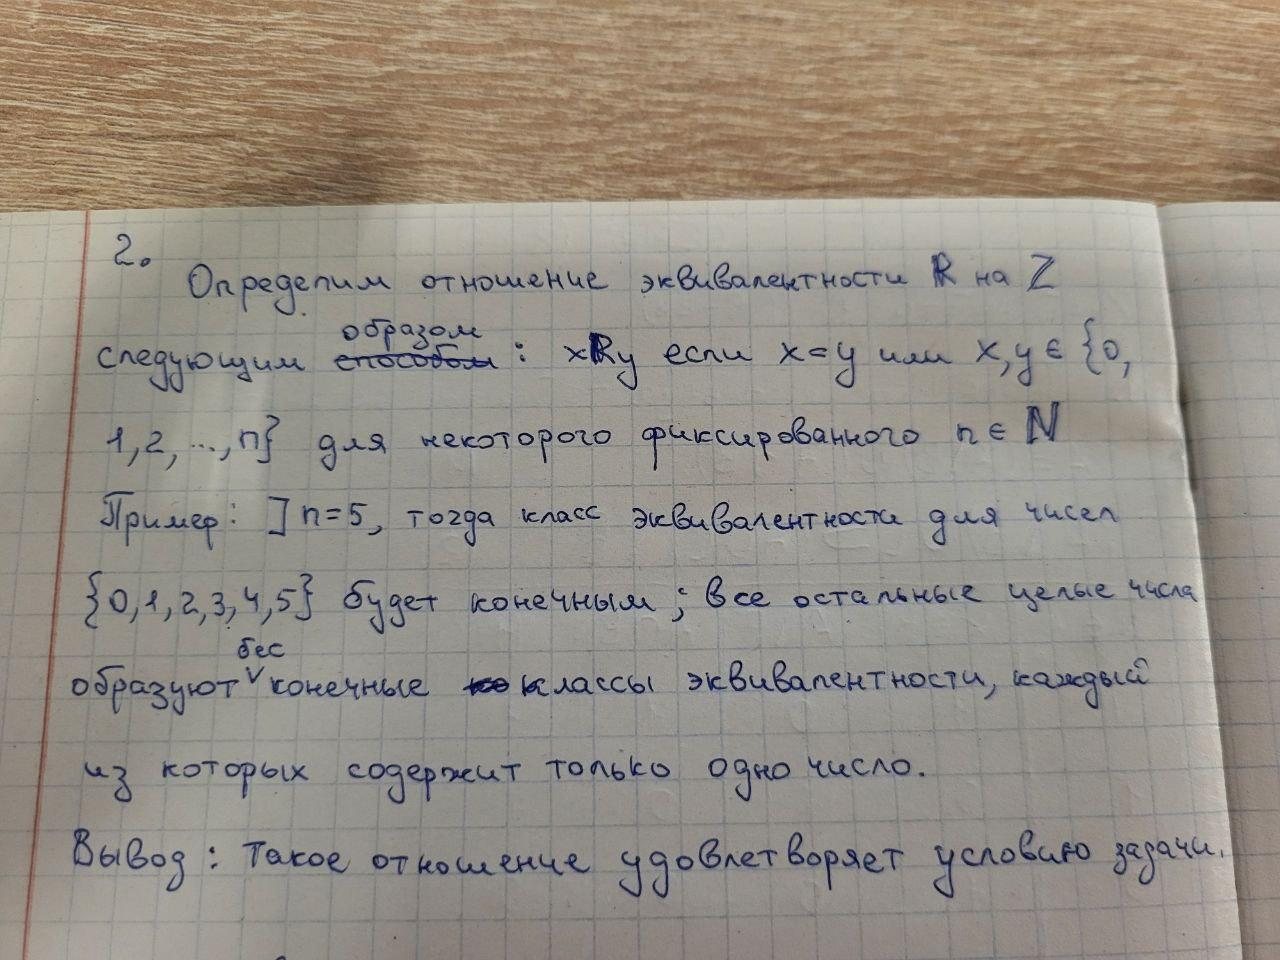 2.
Определим отношение эквивалентности R на Z
следующим способом образом : xRy если x=y или x,y ∈ {0,
1,2,...,n} для некоторого фиксированного n ∈ N
Пример: ] n=5, тогда класс эквивалентности для чисел
{0,1,2,3,4,5} будет конечным; все остальные целые числа
образуют бесконечные классы эквивалентности, каждый
из которых содержит только одно число.
Вывод: Такое отношение удовлетворяет условию задачи.